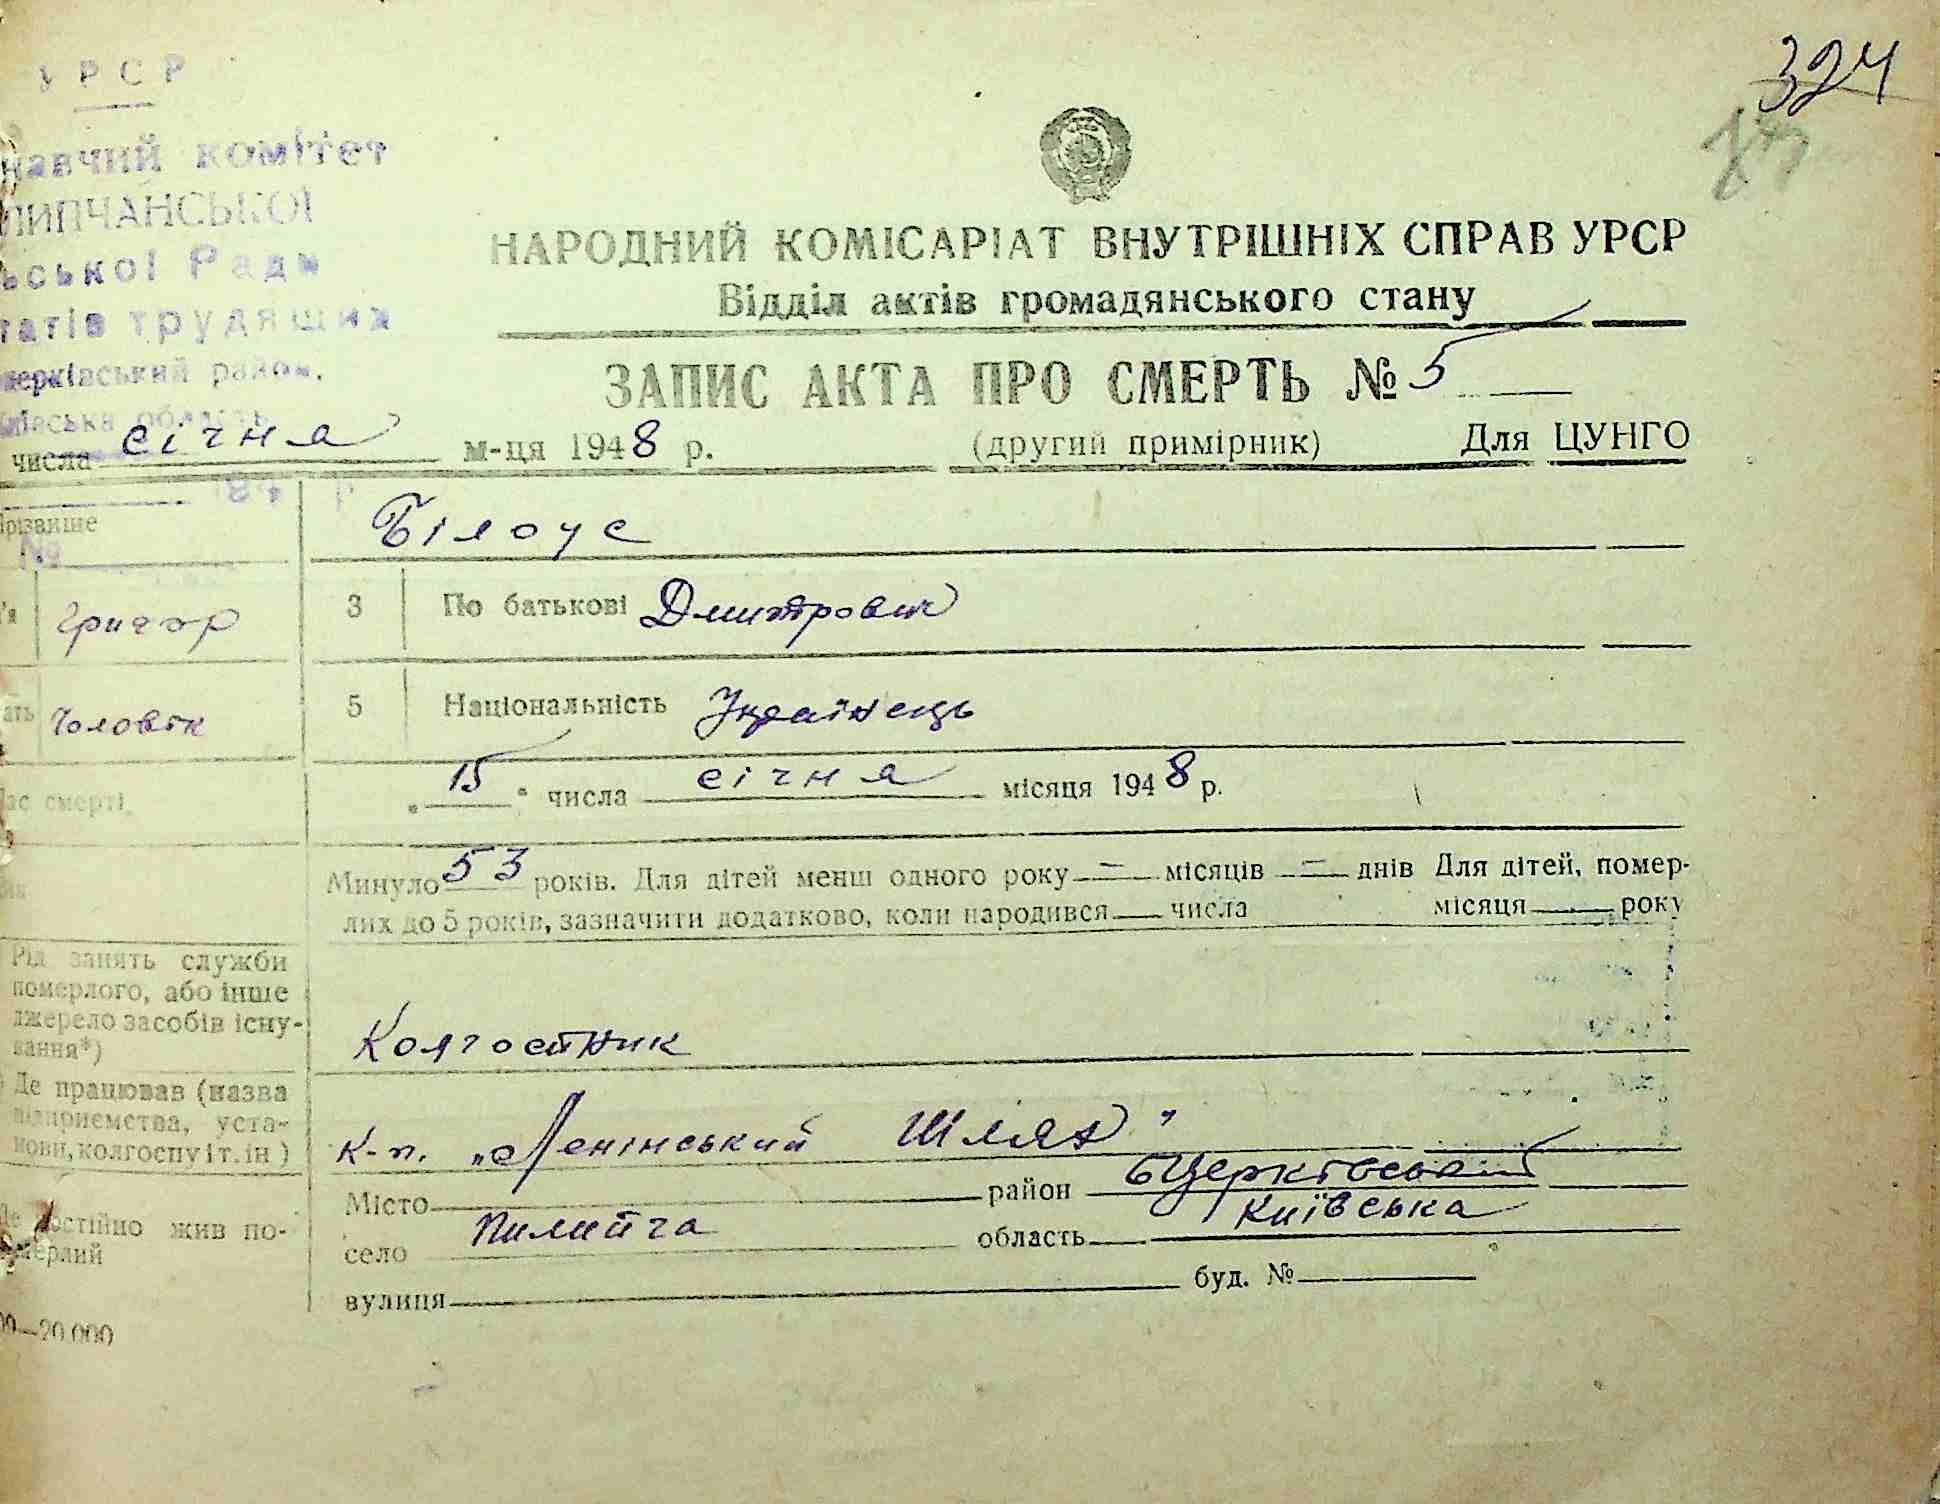 324
УРСР
навчий комітет
ЛИПЧАНСЬКОЇ
ської Ради
татів трудящих
церківський район,
київська область
194 р
№
НАРОДНИЙ КОМІСАРІАТ ВНУТРІШНІХ СПРАВ УРСР
Відділ актів громадянського стану
ЗАПИС АКТА ПРО СМЕРТЬ № 5
числа січня м-ця 1948 р. (другий примірник) Для ЦУНГО
Прізвище Білоус
Григор 3 По батькові Дмитрович
Чоловік 5 Національність Українець
Час смерті „15" числа січня місяця 1948 р.
Минуло 53 років. Для дітей менш одного року — місяців — днів Для дітей, помер-
лих до 5 років, зазначити додатково, коли народився — числа місяця — року
Рід занять служби
померлого, або інше
джерело засобів існу-
вання*)
Колгостник
Де працював (назва
підприємства, уста-
нови, колгоспу і т. ін )
К-п. „Ленінський Шлях"
Де постійно жив по-
мерлий
Місто район БЦерківський
село Пилипча область Київська
вулиця буд. №
00—20.000